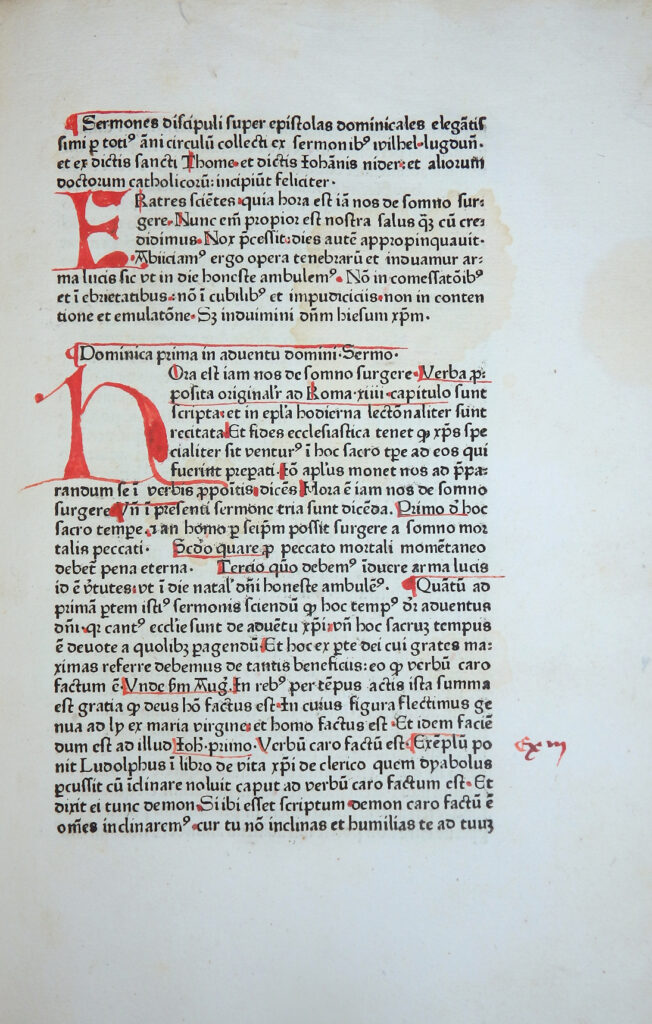 ¶ Sermones discipuli super epistolas dominicales elegãtis
simi per totiꝰ ãni circulũ collecti ex sermonibꝰ wilhel·lugduñ·
et ex dictis sancti Thome·et dictis Iohãnis nider:et aliorum
doctorum catholicorũ:incipiũt feliciter·
FRatres sciẽtes:quia hora est iã nos de somno sur⸗
gere·Nunc em̃ propior est nostra salus qꝫ cũ cre⸗
didimus·Nox p̃cessit:dies autẽ appropinquauit·
Abiiciamꝰ ergo opera tenebrarũ et induamur ar⸗
ma lucis sic vt in die honeste ambulemꝰ·Nõ in comessatõibꝰ
et ĩ ebrietatibus:nõ ĩ cubilibꝰ et impudiciciis:non in conten
tione et emulatõne·Sꝫ induimini dñm hiesum xp̃m·
¶ Dominica prima in aduentu domini·Sermo·
hOra est iam nos de somno surgere·Verba p̱⸗
posita originalr̃ ad Roma·xiii·capitulo sunt
scripta:et in epl̃a hodierna lectõnaliter sunt
recitata·Et fides ecclesiastica tenet ꝙ xp̃s spe
cialiter sit venturꝰ ĩ hoc sacro tp̃e ad eos qui
fuerint prepati·Iõ apl̃us monet nos ad p̃pa⸗
randum se ĩ verbis p̱põitis:dicẽs Hora ẽ iam nos de somno
surgere·Vñ ĩ presenti sermone tria sunt dicẽda. Primo ꝺ̓ hoc
sacro tempe·an homo ꝑ seip̃m possit surgere a somno mor
talis peccati· Scðo quare ꝓ peccato mortali momẽtaneo
debet pena eterna. Tercio quõ debemꝰ ĩduere arma lucis
id ẽ v̓tutes:vt ĩ die natal̓ dñi honeste ambulẽꝰ. ¶Quãtũ ad
primã ꝑtem istiꝰ sermonis sciendũ ꝙ hoc tempꝰ dr̃ aduentus
dñi·qr cantꝰ ecclie sunt de aduẽtu xp̃i:vñ hoc sacrũ tempus
ẽ deuote a quolibꝫ pagendũ·Et hoc ex ꝑte dei cui grates ma⸗
ximas referre debemus de tantis beneficiis:eo ꝙ verbũ caro
factum ẽ·Vnde b̃m Aug̃·In rebꝰ per tẽpus actis ista summa
est gratia ꝙ deus hõ factus est·In cuius figura flectimus ge
nua ad ly ex maria virgine:et homo factus est·Et idem faciẽ
dum est ad illud Ioh̃·primo·Verbũ caro factũ est·Exẽplũ po
nit Ludolphus ĩ libro de vita xp̃i·de clerico quem dyabolus
ꝑcussit cũ ĩclinare noluit caput ad verbũ caro factum est·Et
dixit ei tunc demon·Si ibi esset scriptum demon caro factũ ẽ
om̃es inclinaremꝰ·cur tu nõ inclinas et humilias te ad tuuꝫ